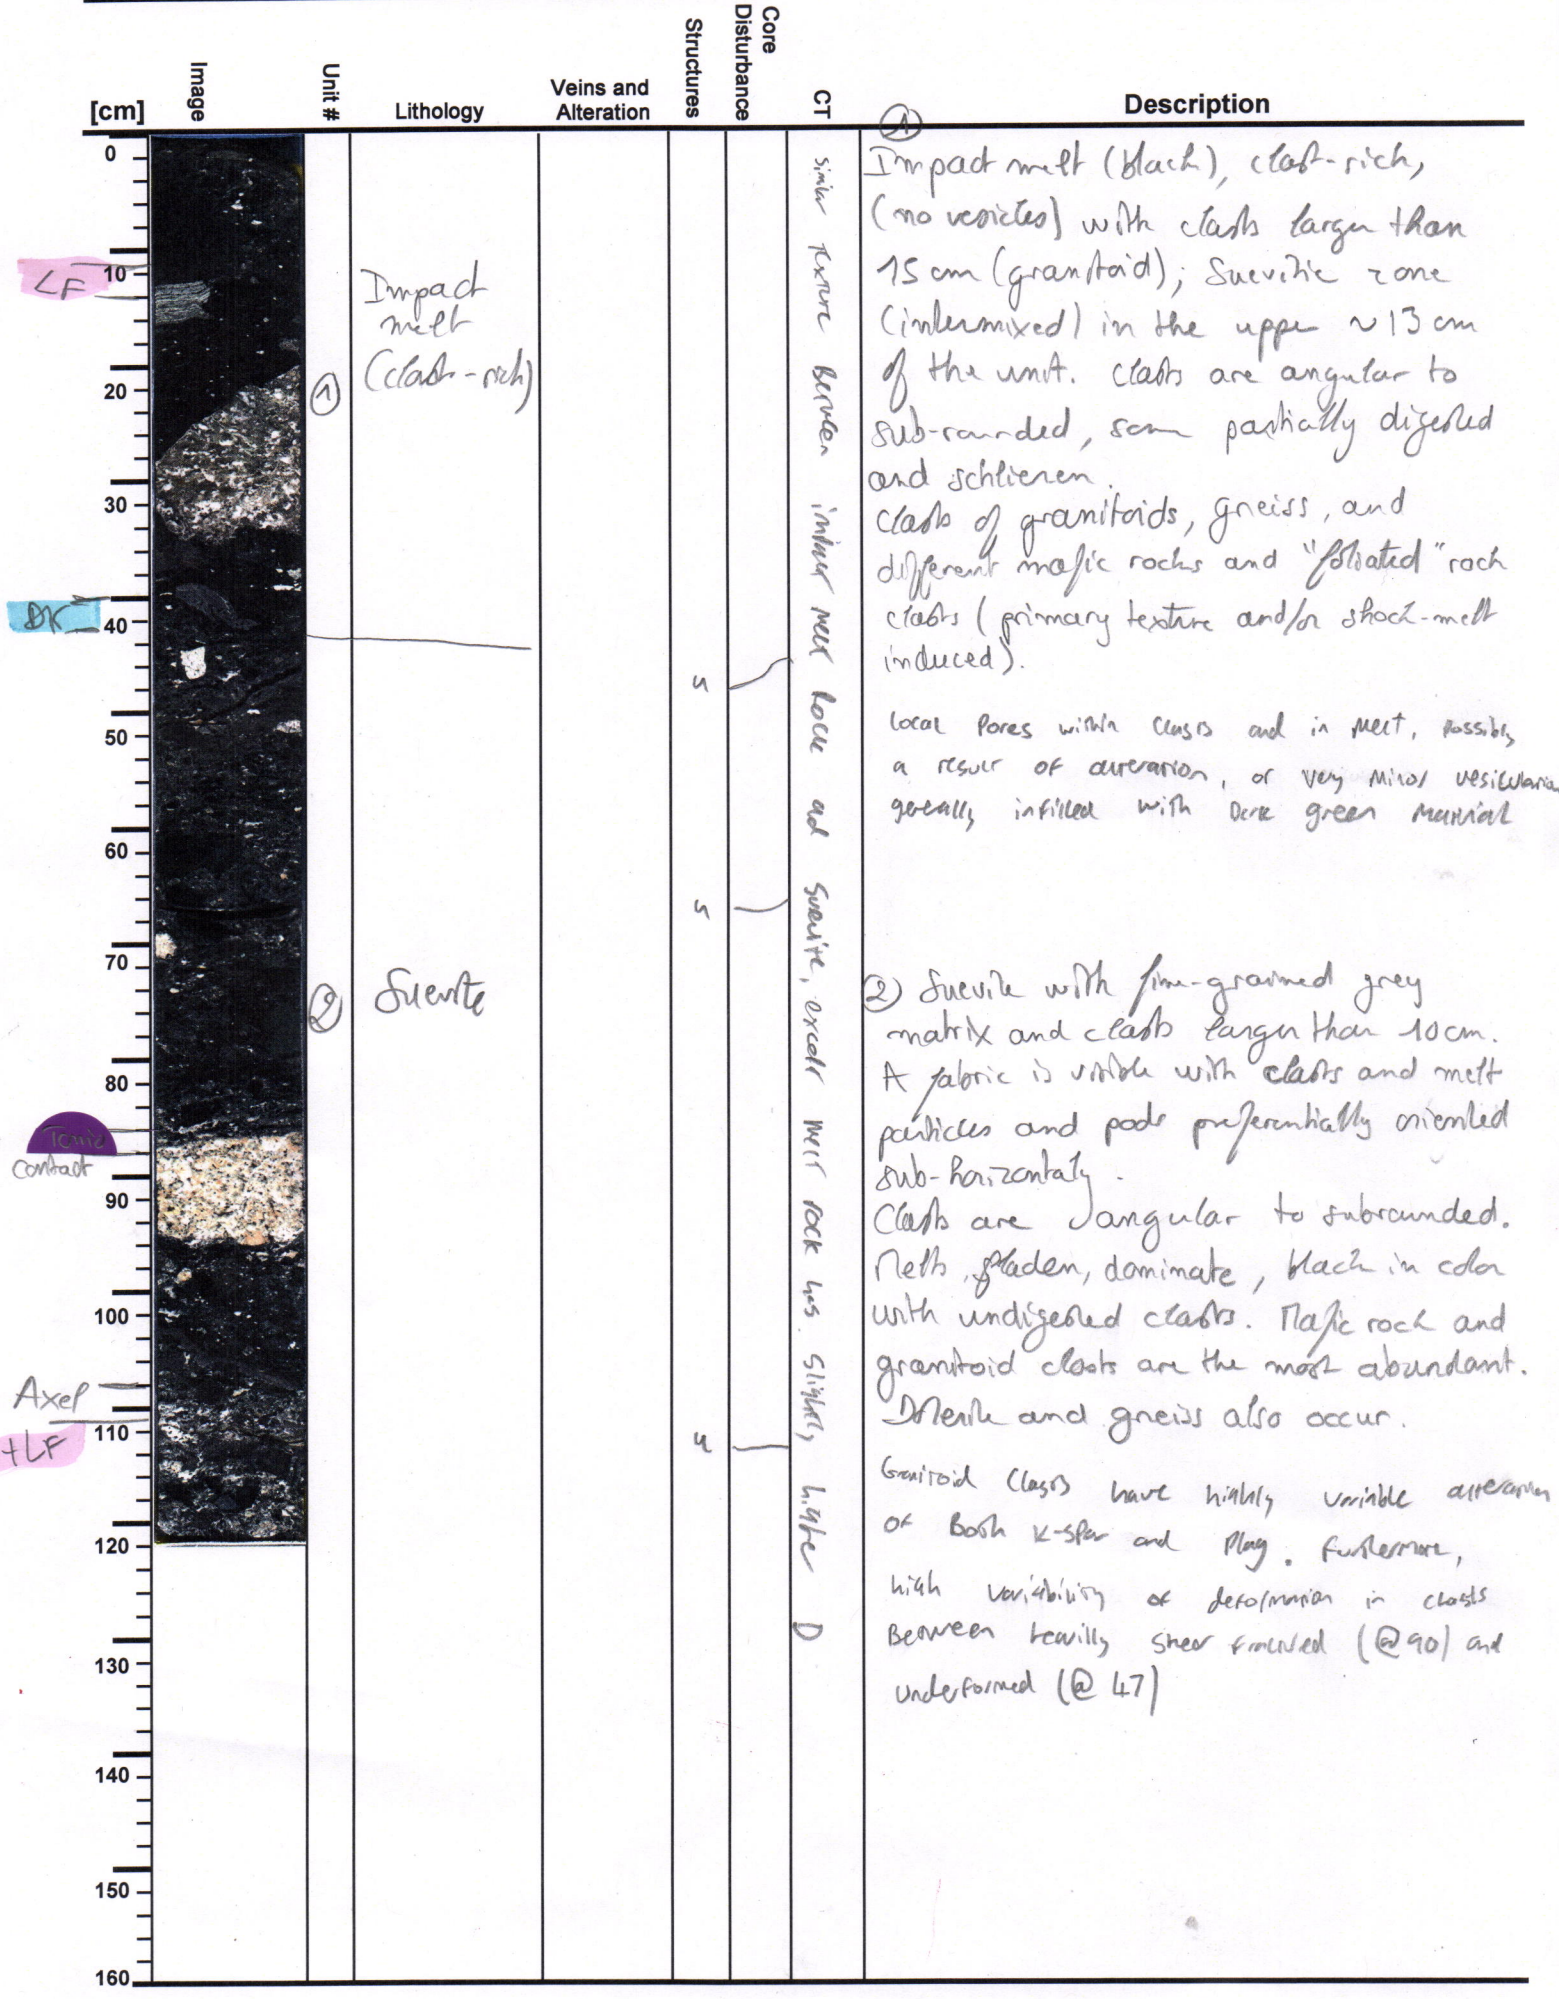 [cm]
Image
Unit #
Lithology
Veins and
Alteration
Structures
Core
Disturbance
CT
Description
0
10
20
30
40
50
60
70
80
90
100
110
120
130
140
150
160
LF
DK
Tomic
contact
Axel
+LF
1
Impact
melt
(clast-rich)
2
Suevite
u
u
u
similar Texture Between impact melt Rock and Suevite, except melt rock has slightly higher D
1
Impact melt (black), clast-rich,
(no vesicles) with clasts larger than
15 cm (granitoid); Suevitic zone
(intermixed) in the upper ~13 cm
of the unit. Clasts are angular to
sub-rounded, some partially digested
and schlieren.
Clasts of granitoids, gneiss, and
different mafic rocks and "foliated" rock
clasts (primary texture and/or shock-melt
induced).
Local Pores within Clasts and in Melt, Possibly
a result of alteration, or very Minor vesiculation
generally infilled with Dark green Material
2 Suevite with fine-grained grey
matrix and clasts larger than 10cm.
A fabric is visible with clasts and melt
particles and pods preferentially oriented
sub-horizontaly.
Clasts are angular to subrounded.
Melts, fladen, dominate, black in color
with undigested clasts. Mafic rock and
granitoid clasts are the most abundant.
Dolerite and gneiss also occur.
Granitoid Clasts have highly variable alteration
of Both K-spar and Plag. Furthermore,
high variability of deformation in clasts
Between heavilly shear fractured (@90) and
underformed (@ 47)